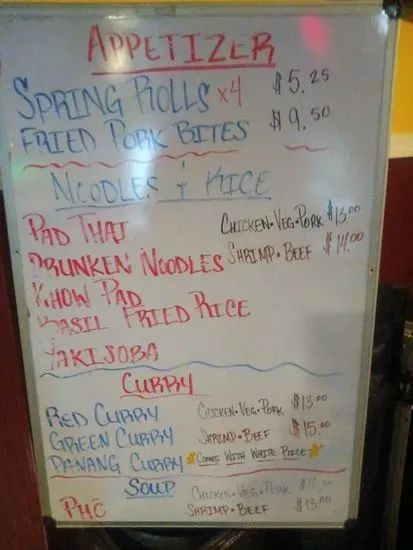 APPETIZER
SPRING ROLLS x4 $5.25
FRIED PORK BITES $9.50
NOODLES & RICE
PAD THAI CHICKEN•VEG•PORK $13.00
DRUNKEN NOODLES SHRIMP•BEEF $14.00
KHOW PAD
BASIL FRIED RICE
YAKISOBA
CURRY
RED CURRY CHICKEN•VEG•PORK $13.00
GREEN CURRY SHRIMP•BEEF $15.00
PANANG CURRY COMES WITH WHITE RICE
SOUP CHICKEN•VEG•PORK
PHO SHRIMP•BEEF $13.00